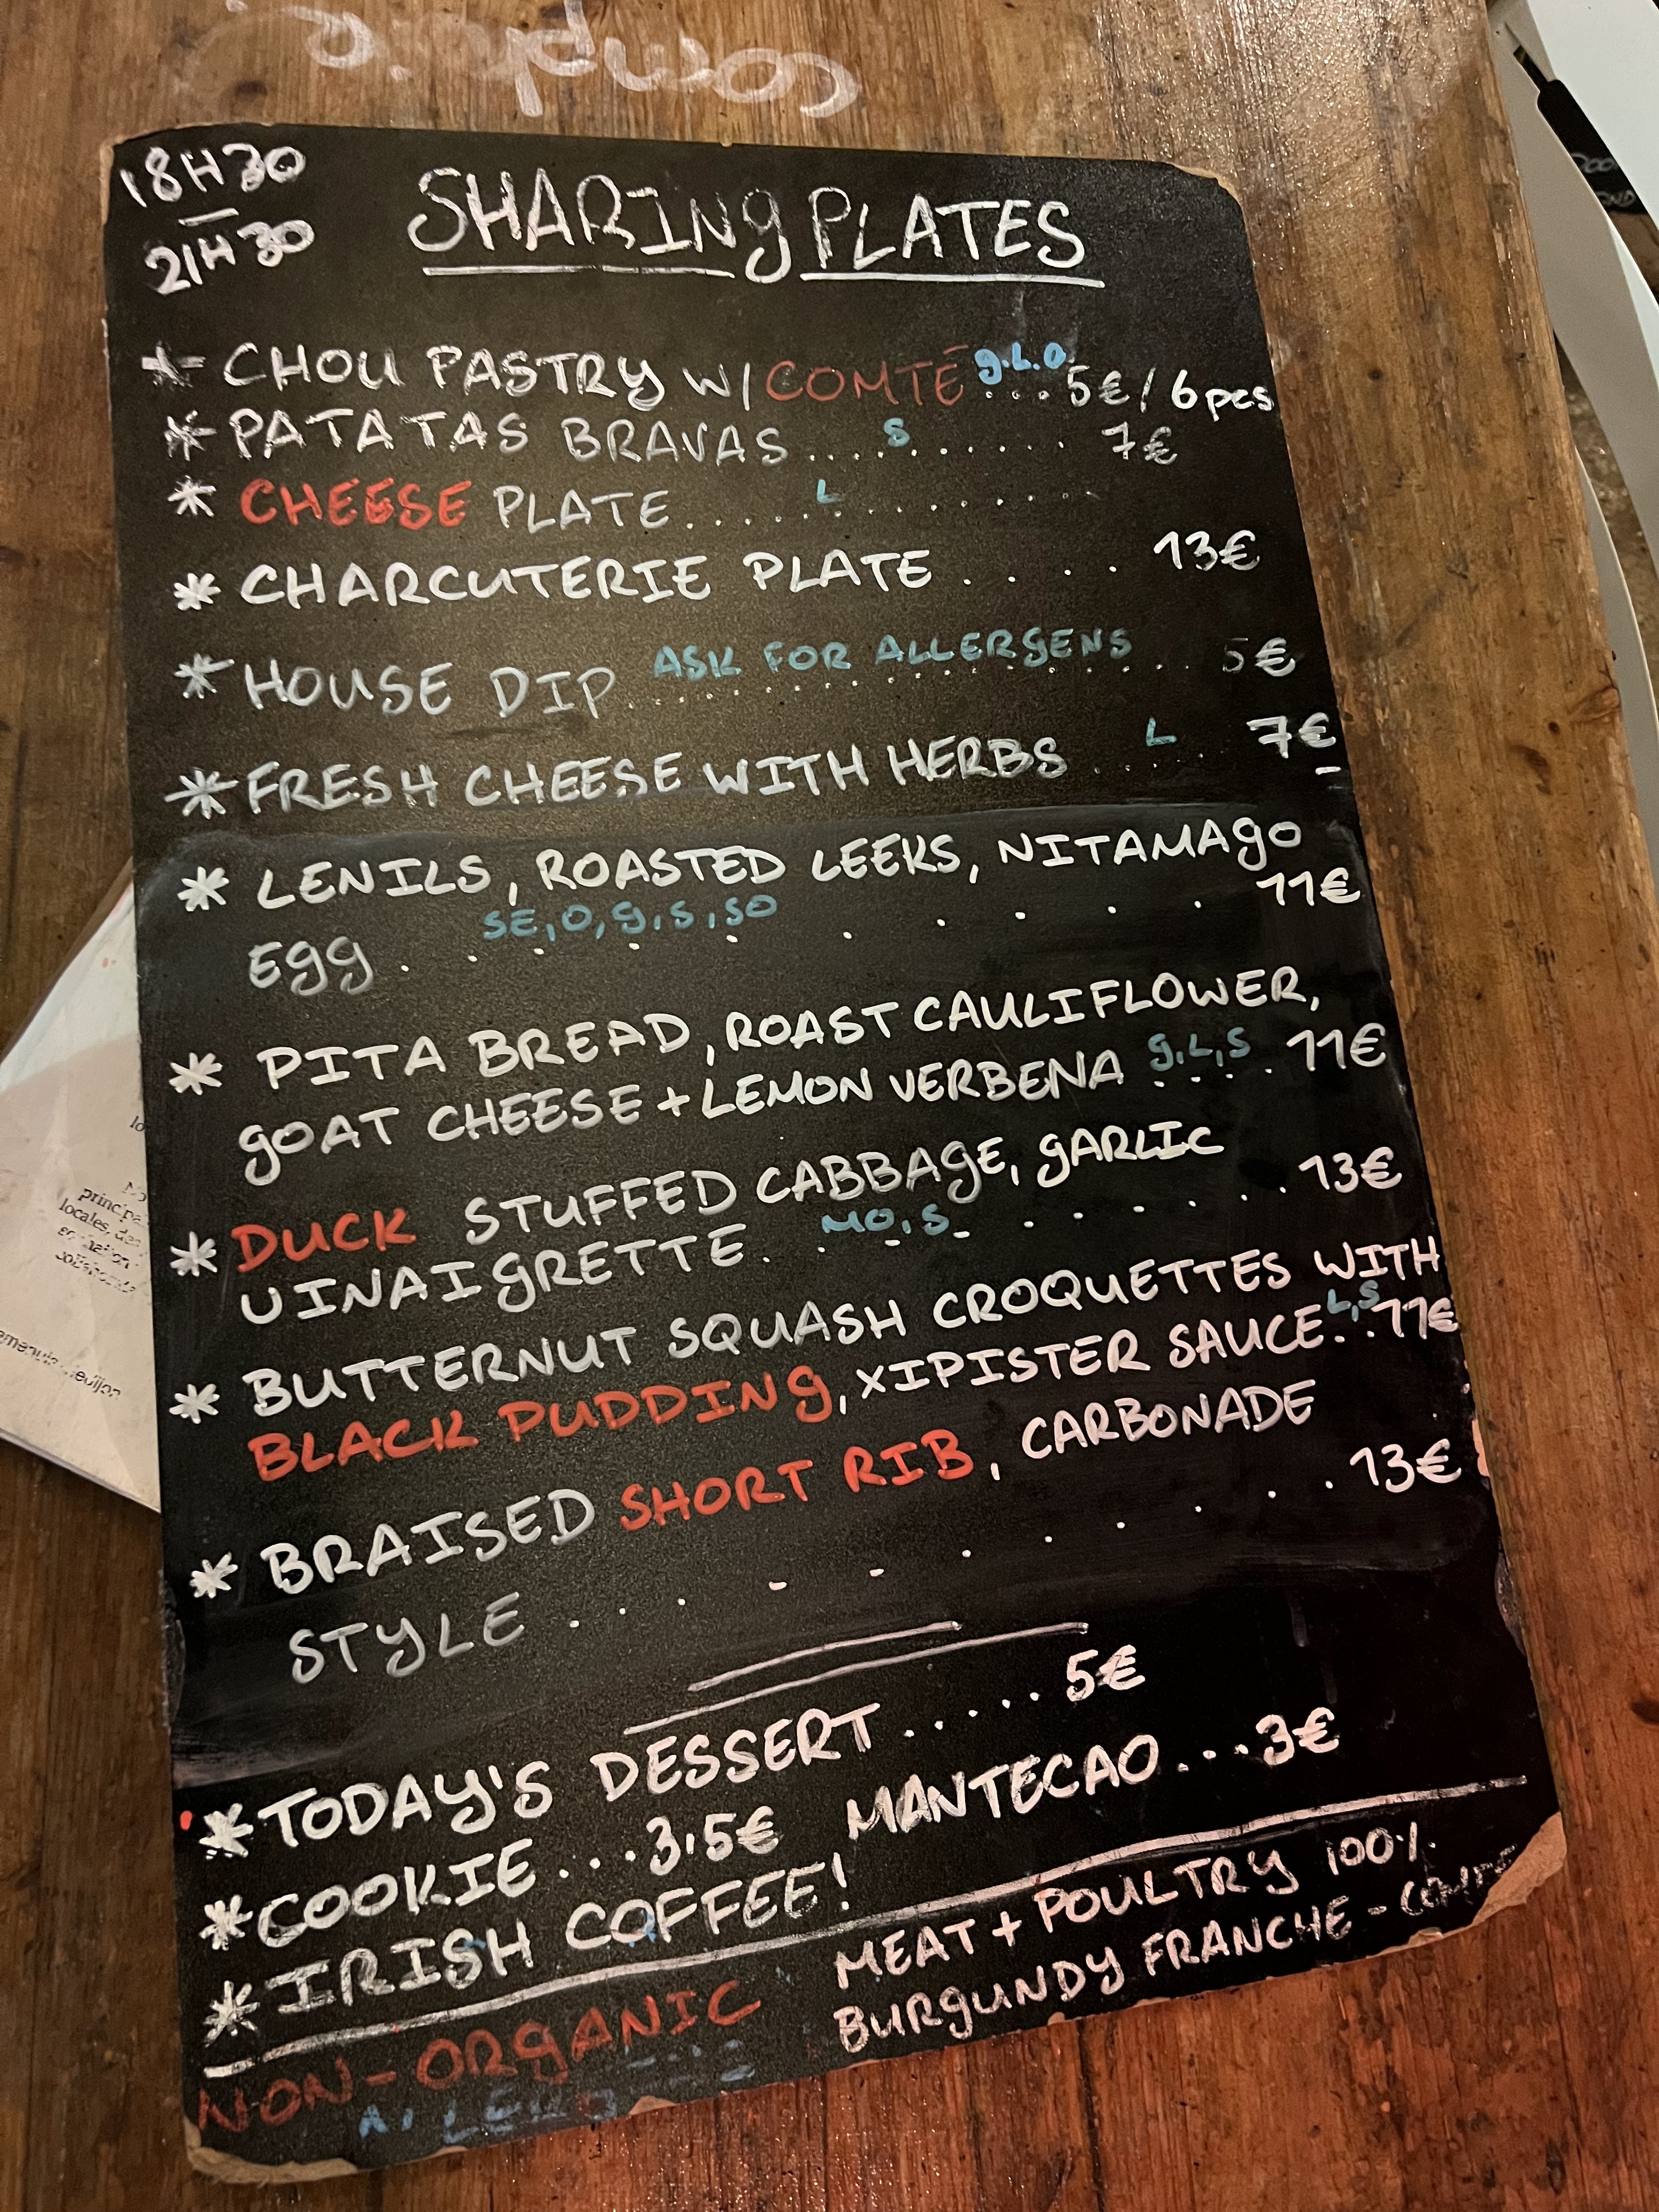 18H30
—
21H30
SHARINg PLATES
* CHOU PASTRY W/ COMTÉ g.L.O. ... 5€ / 6 pcs
* PATATAS BRAVAS .... S ...... 7€
* CHEESE PLATE .... L ........
* CHARCUTERIE PLATE .... 13€
* HOUSE DIP ASK FOR ALLERgENS .. 5€
* FRESH CHEESE WITH HERBS .... L .. 7€
* LENILS, ROASTED LEEKS, NITAMAgO
Egg . SE, O, g, S, SO ...... 11€
* PITA BREAD, ROAST CAULIFLOWER,
gOAT CHEESE + LEMON VERBENA g, L, S .... 11€
* DUCK STUFFED CABBAgE, gARLIC
VINAIgRETTE . MO, S ...... 13€
* BUTTERNUT SQUASH CROQUETTES WITH
BLACK PUDDINg, XIPISTER SAUCE L, S ... 11€
* BRAISED SHORT RIB, CARBONADE
STYLE .......... 13€
* TODAY'S DESSERT ..... 5€
* COOKIE ... 3.5€ MANTECAO ... 3€
* IRISH COFFEE!
NON-ORgANIC
MEAT + POULTRY 100%
BURgUNDY FRANCHE-COMTÉ
principa
locales, des